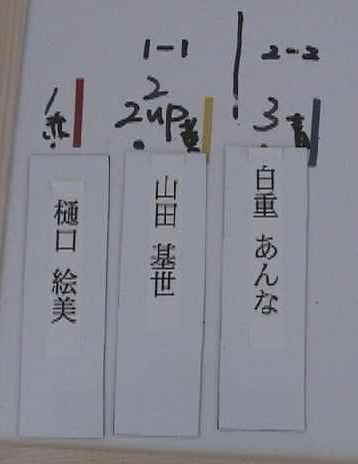 1-1
2-2
1 赤
2
2up 黄
3 青
樋口 絵美
山田 基世
白重 あんな